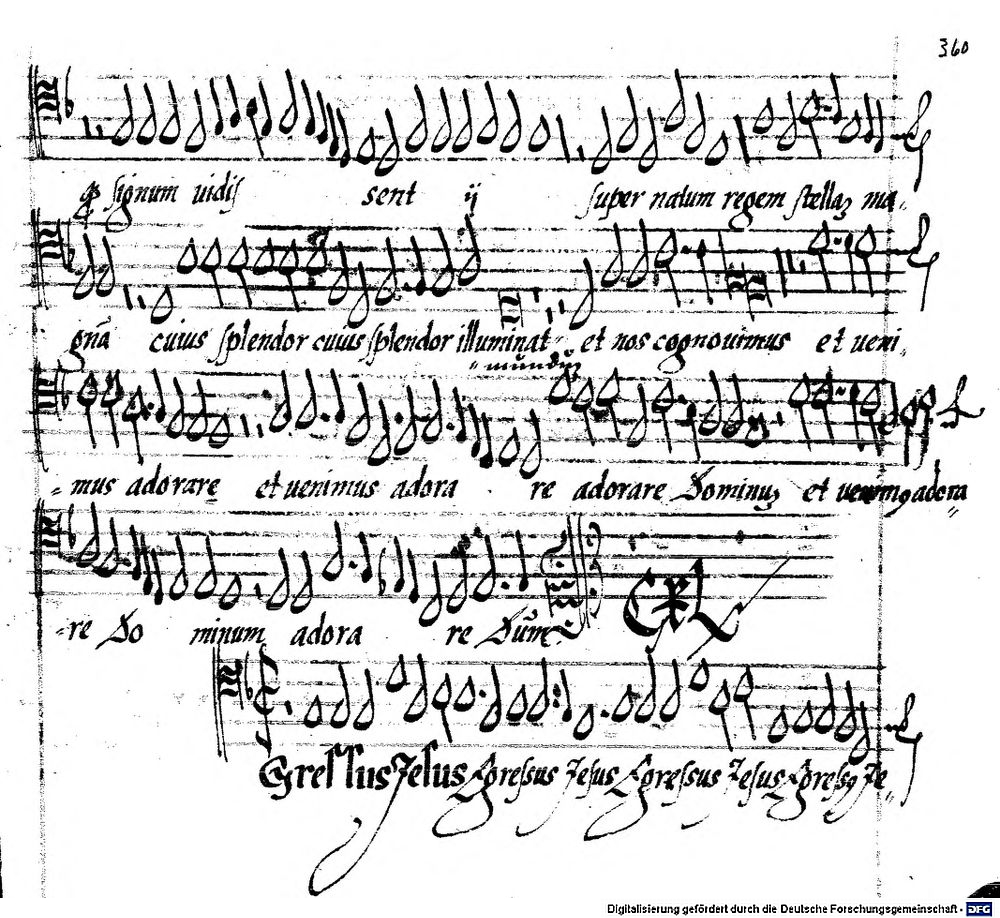 360
signum vidis sent ij super natum regem stella ma-
gna cuius splendor cuius splendor illuminat et nos cognovimus et veni-
mundū
mus adorare et venimus adora re adorare Dominu et venim adora
re Do minum adora re Dūm
Gressus Jesus Egressus Jesus Egressus Jesus Egress Je-
Digitalisierung gefördert durch die Deutsche Forschungsgemeinschaft - DFG